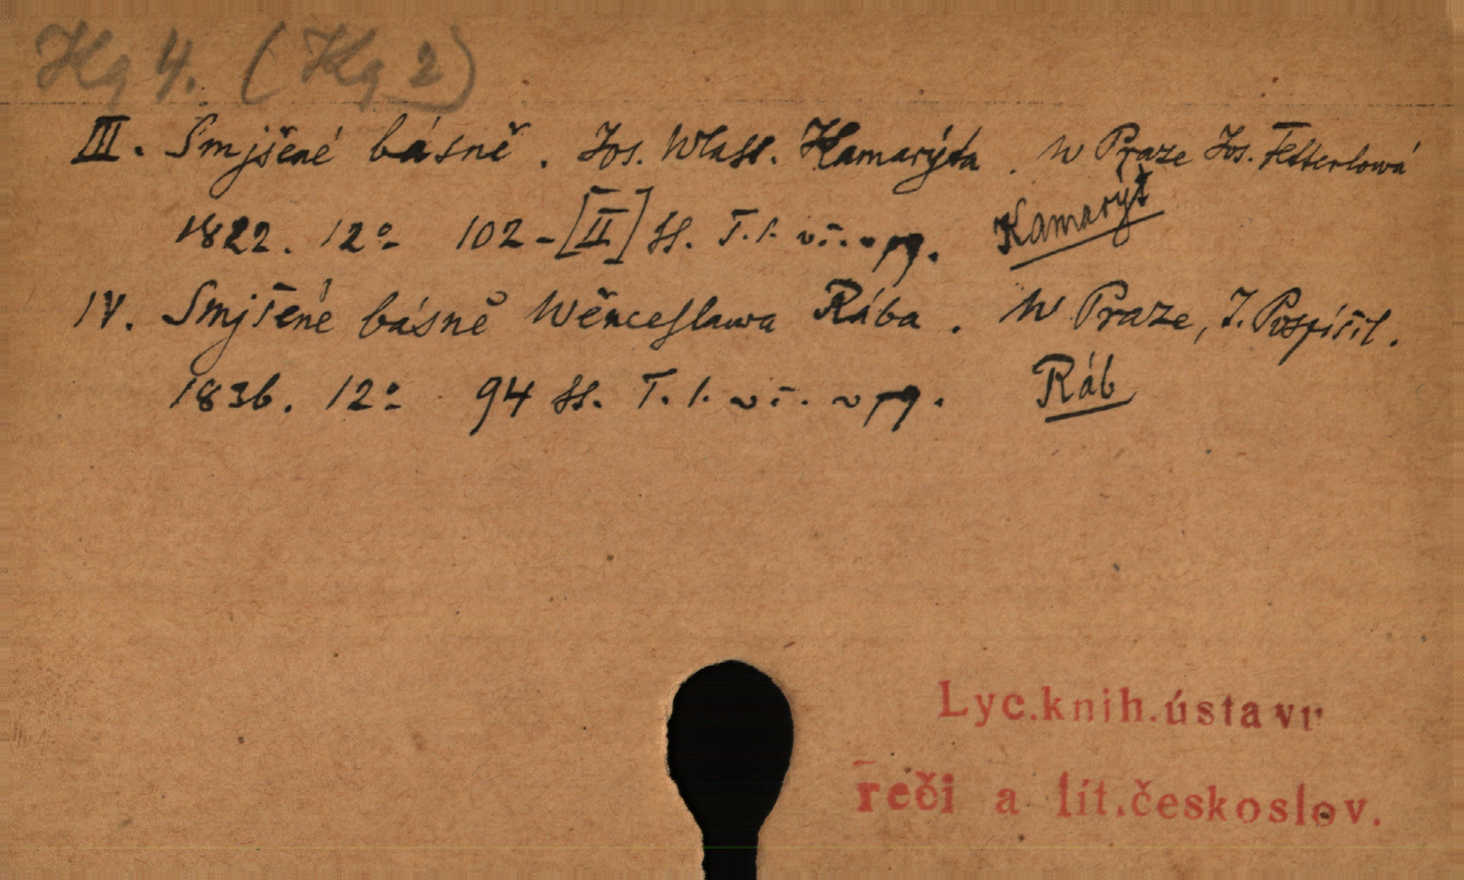 Kg 4. (Kg 2)
III. Smjšené básně. Jos. Wlast. Kamarýta. W Praze Jos. Fetterlowá
1822. 12° 102-[II] ss.
Kamarýt
IV. Smjšené básně Wěnceslawa Rába. W Praze, J. Pospíšil.
1836. 12° 94 ss.
Ráb
Lyc.knih.ústavr
řeči a lit.českoslov.